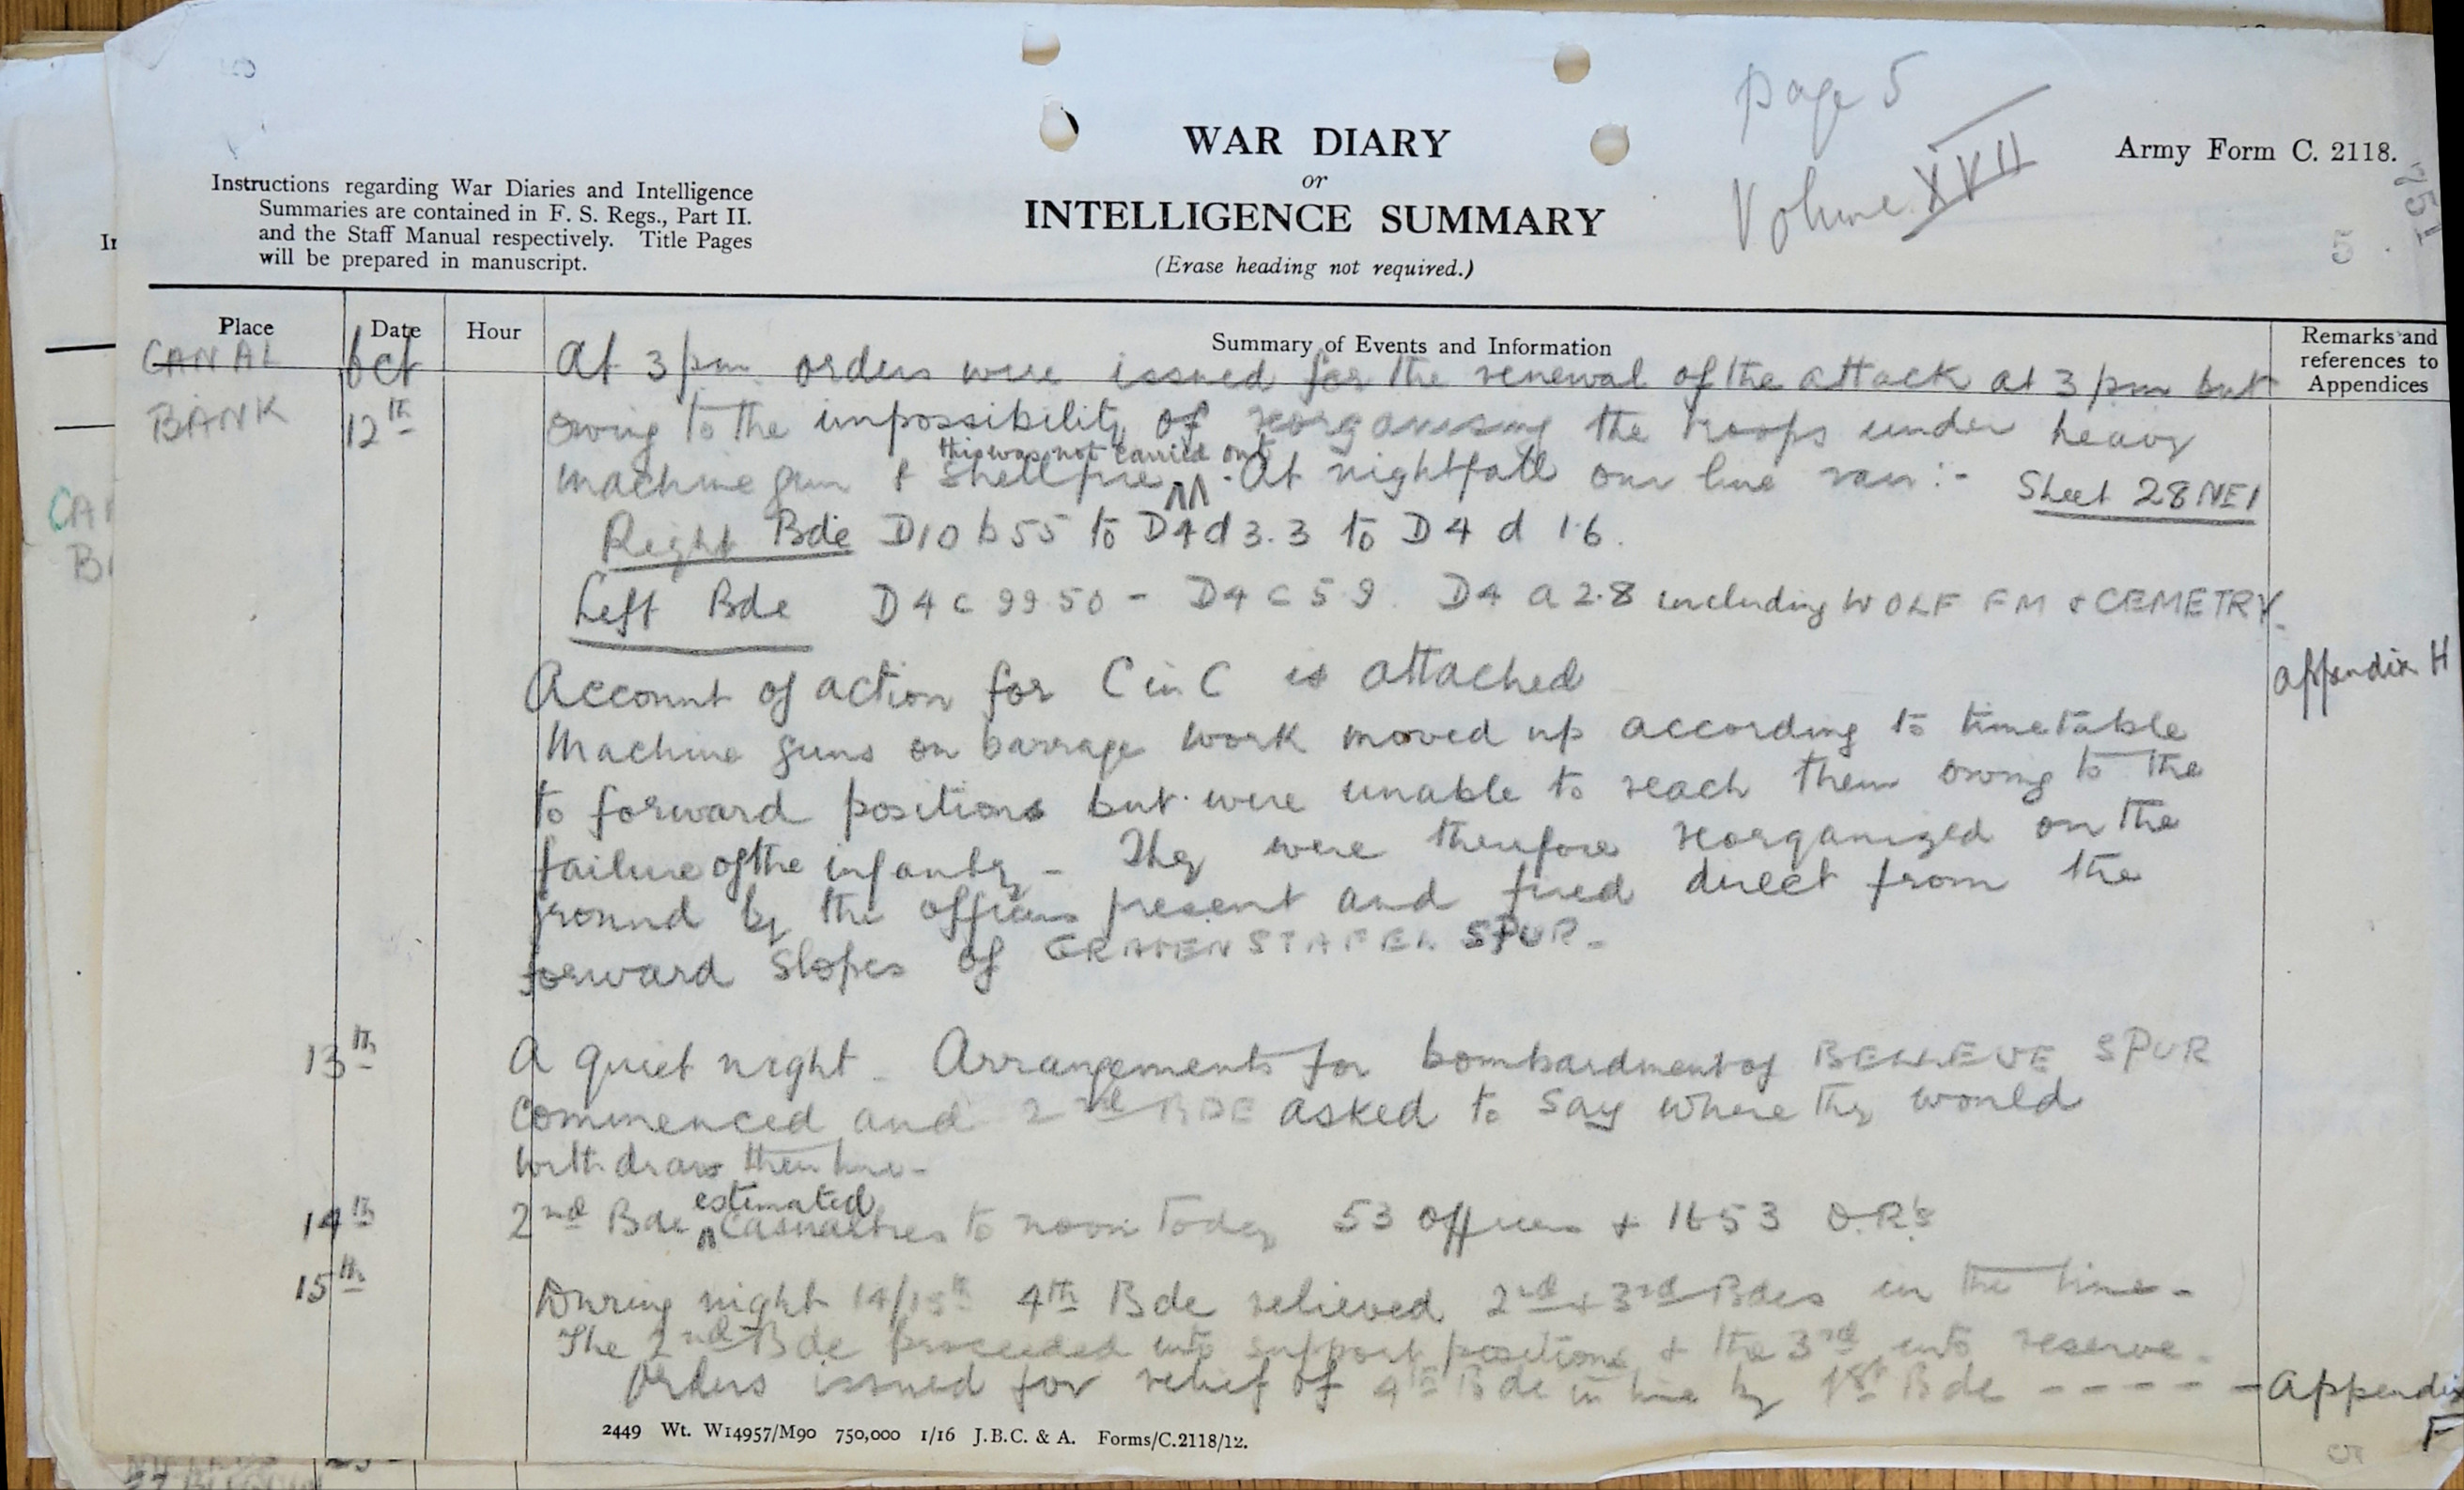 page 5
Volume XVII
WAR DIARY
or
INTELLIGENCE SUMMARY
(Erase heading not required.)
Army Form C. 2118.
751
5
Instructions regarding War Diaries and Intelligence
Summaries are contained in F. S. Regs., Part II.
and the Staff Manual respectively. Title Pages
will be prepared in manuscript.
Place Date Hour Summary of Events and Information Remarks and
references to
Appendices
CANAL Oct At 3 pm orders were issued for the renewal of the attack at 3 pm but
BANK 12th owing to the impossibility of reorganising the troops under heavy
this was not carried out
machine gun & shell fire. At nightfall our line ran :- Sheet 28 NE1
Right Bde D10 b 55 to D4 d 3.3 to D 4 d 1.6.
Left Bde D 4 c 99.50 - D4 c 5 9. D4 a 2.8 including WOLF FM & CEMETRY.
Account of action for C in C is attached appendix H
Machine guns on barrage work moved up according to timetable
to forward positions but were unable to reach them owing to the
failure of the infantry - They were therefore reorganized on the
ground by the officers present and fired direct from the
forward slopes of GRAVENSTAFEL SPUR -
13th A quiet night - Arrangements for bombardment of BELLEVUE SPUR
commenced and 2nd BDE asked to say where they would
withdraw their line -
estimated
14th 2nd Bde casualties to noon today 53 officers & 1653 O.R's
15th During night 14/15th 4th Bde relieved 2nd & 3rd Bdes in the line -
The 2nd Bde proceeded into support positions & the 3rd into reserve -
Orders issued for relief of 4th Bde in line by 1st Bde - - - - - Appendix
F
2449 Wt. W14957/M90 750,000 1/16 J.B.C. & A. Forms/C.2118/12.